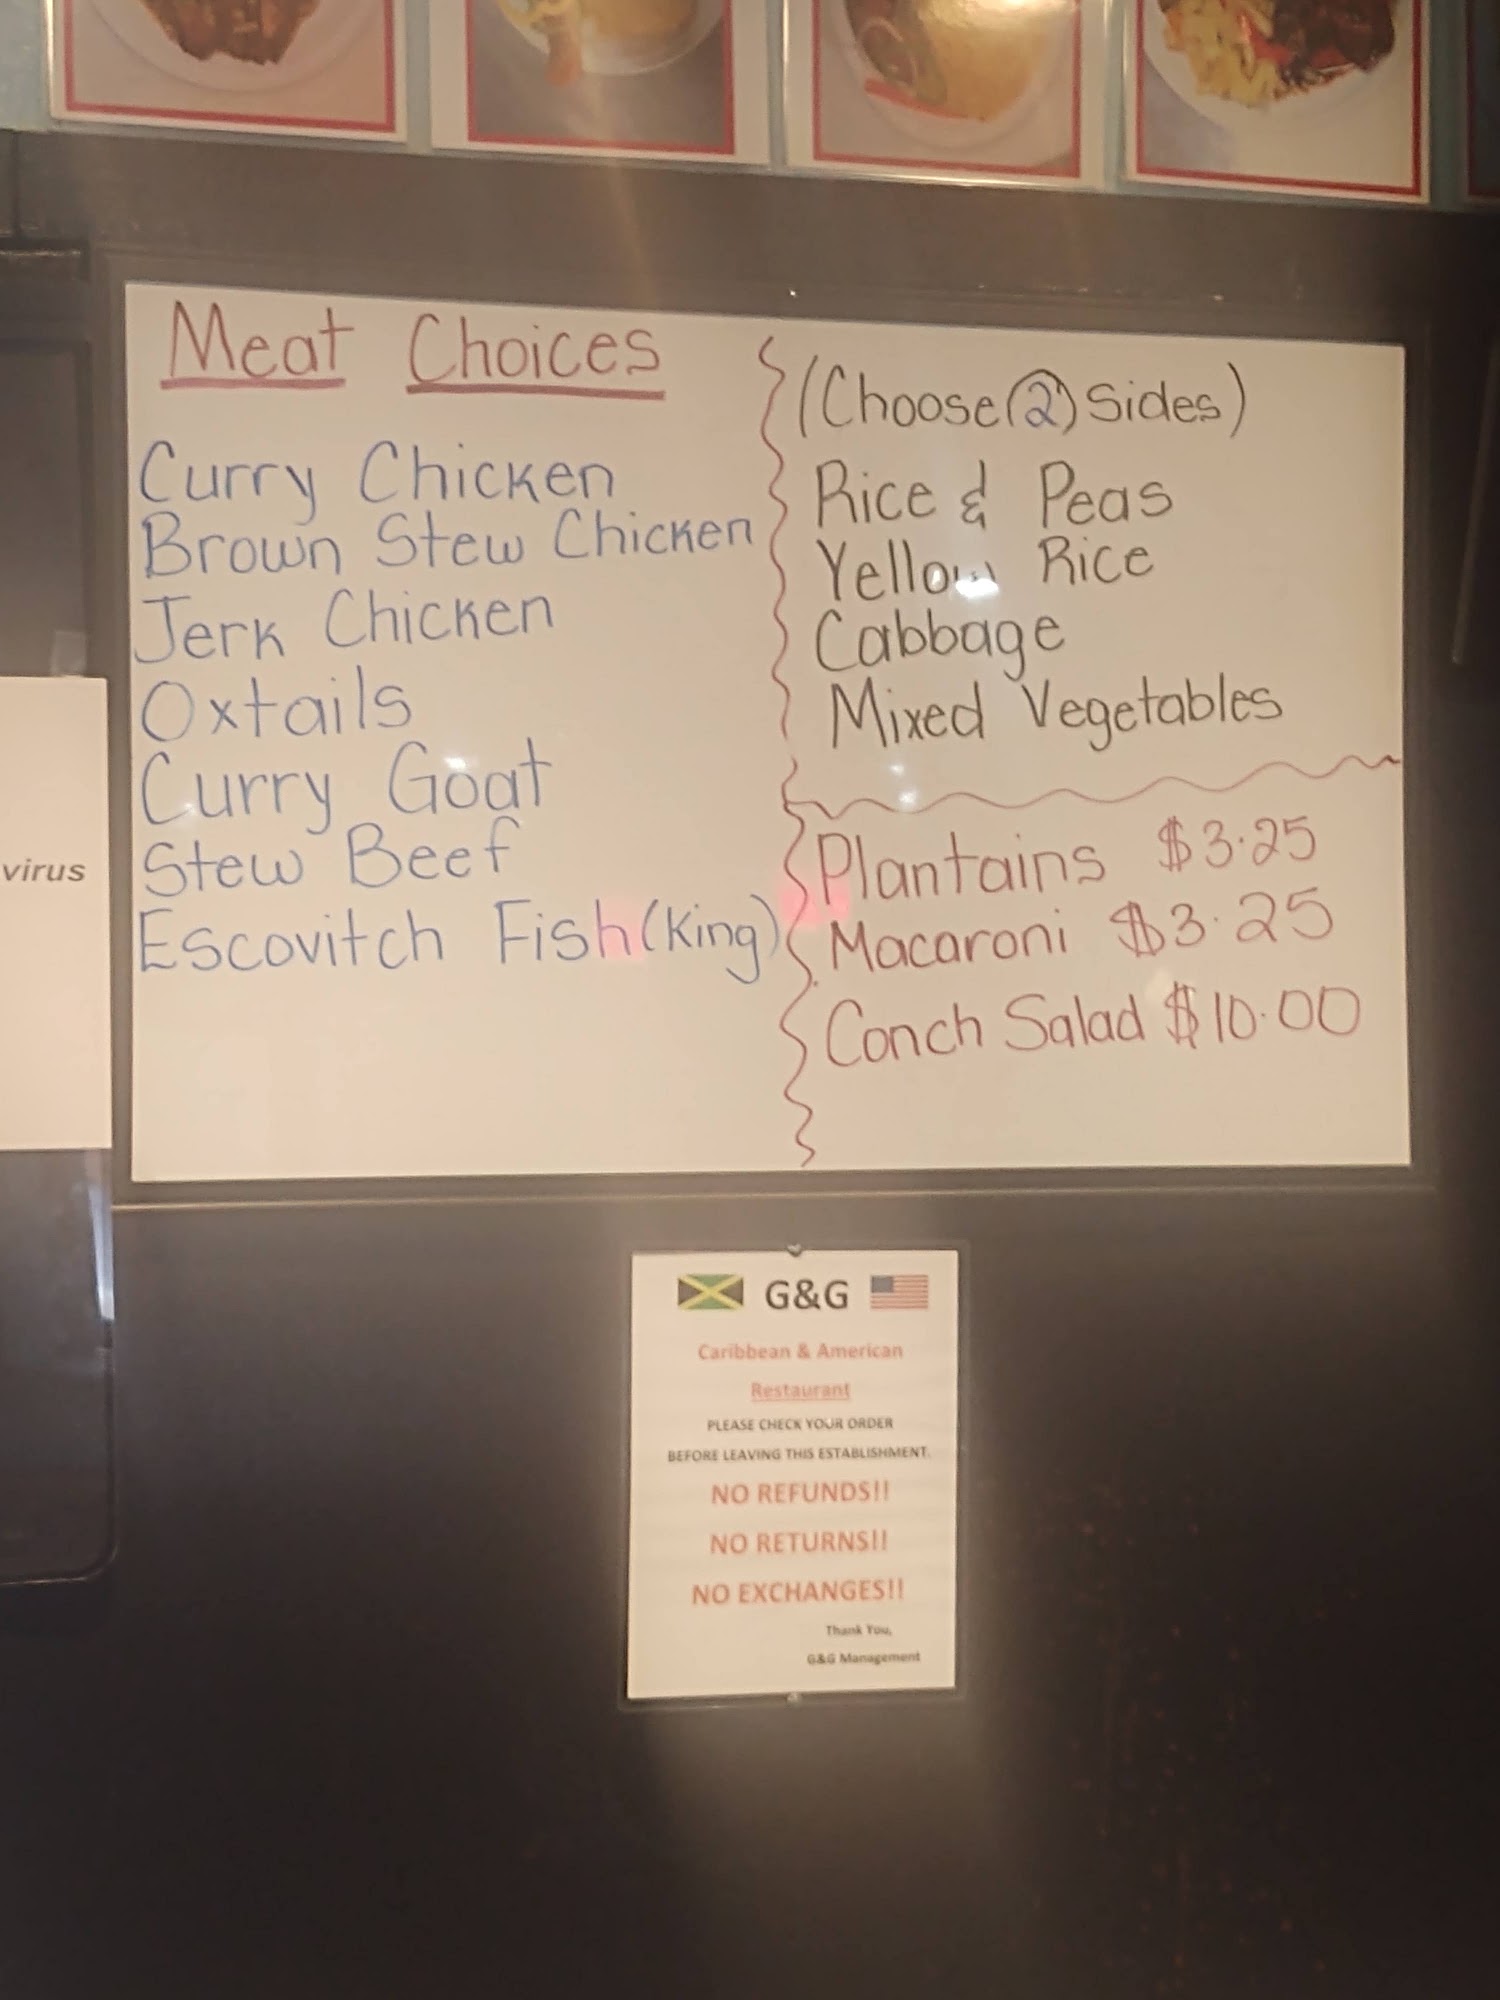 Meat Choices
Curry Chicken
Brown Stew Chicken
Jerk Chicken
Oxtails
Curry Goat
Stew Beef
Escovitch Fish (King)
(Choose 2 Sides)
Rice & Peas
Yellow Rice
Cabbage
Mixed Vegetables
Plantains $3.25
Macaroni $3.25
Conch Salad $10.00
virus
G&G
Caribbean & American
Restaurant
PLEASE CHECK YOUR ORDER
BEFORE LEAVING THIS ESTABLISHMENT.
NO REFUNDS!!
NO RETURNS!!
NO EXCHANGES!!
Thank You,
G&G Management